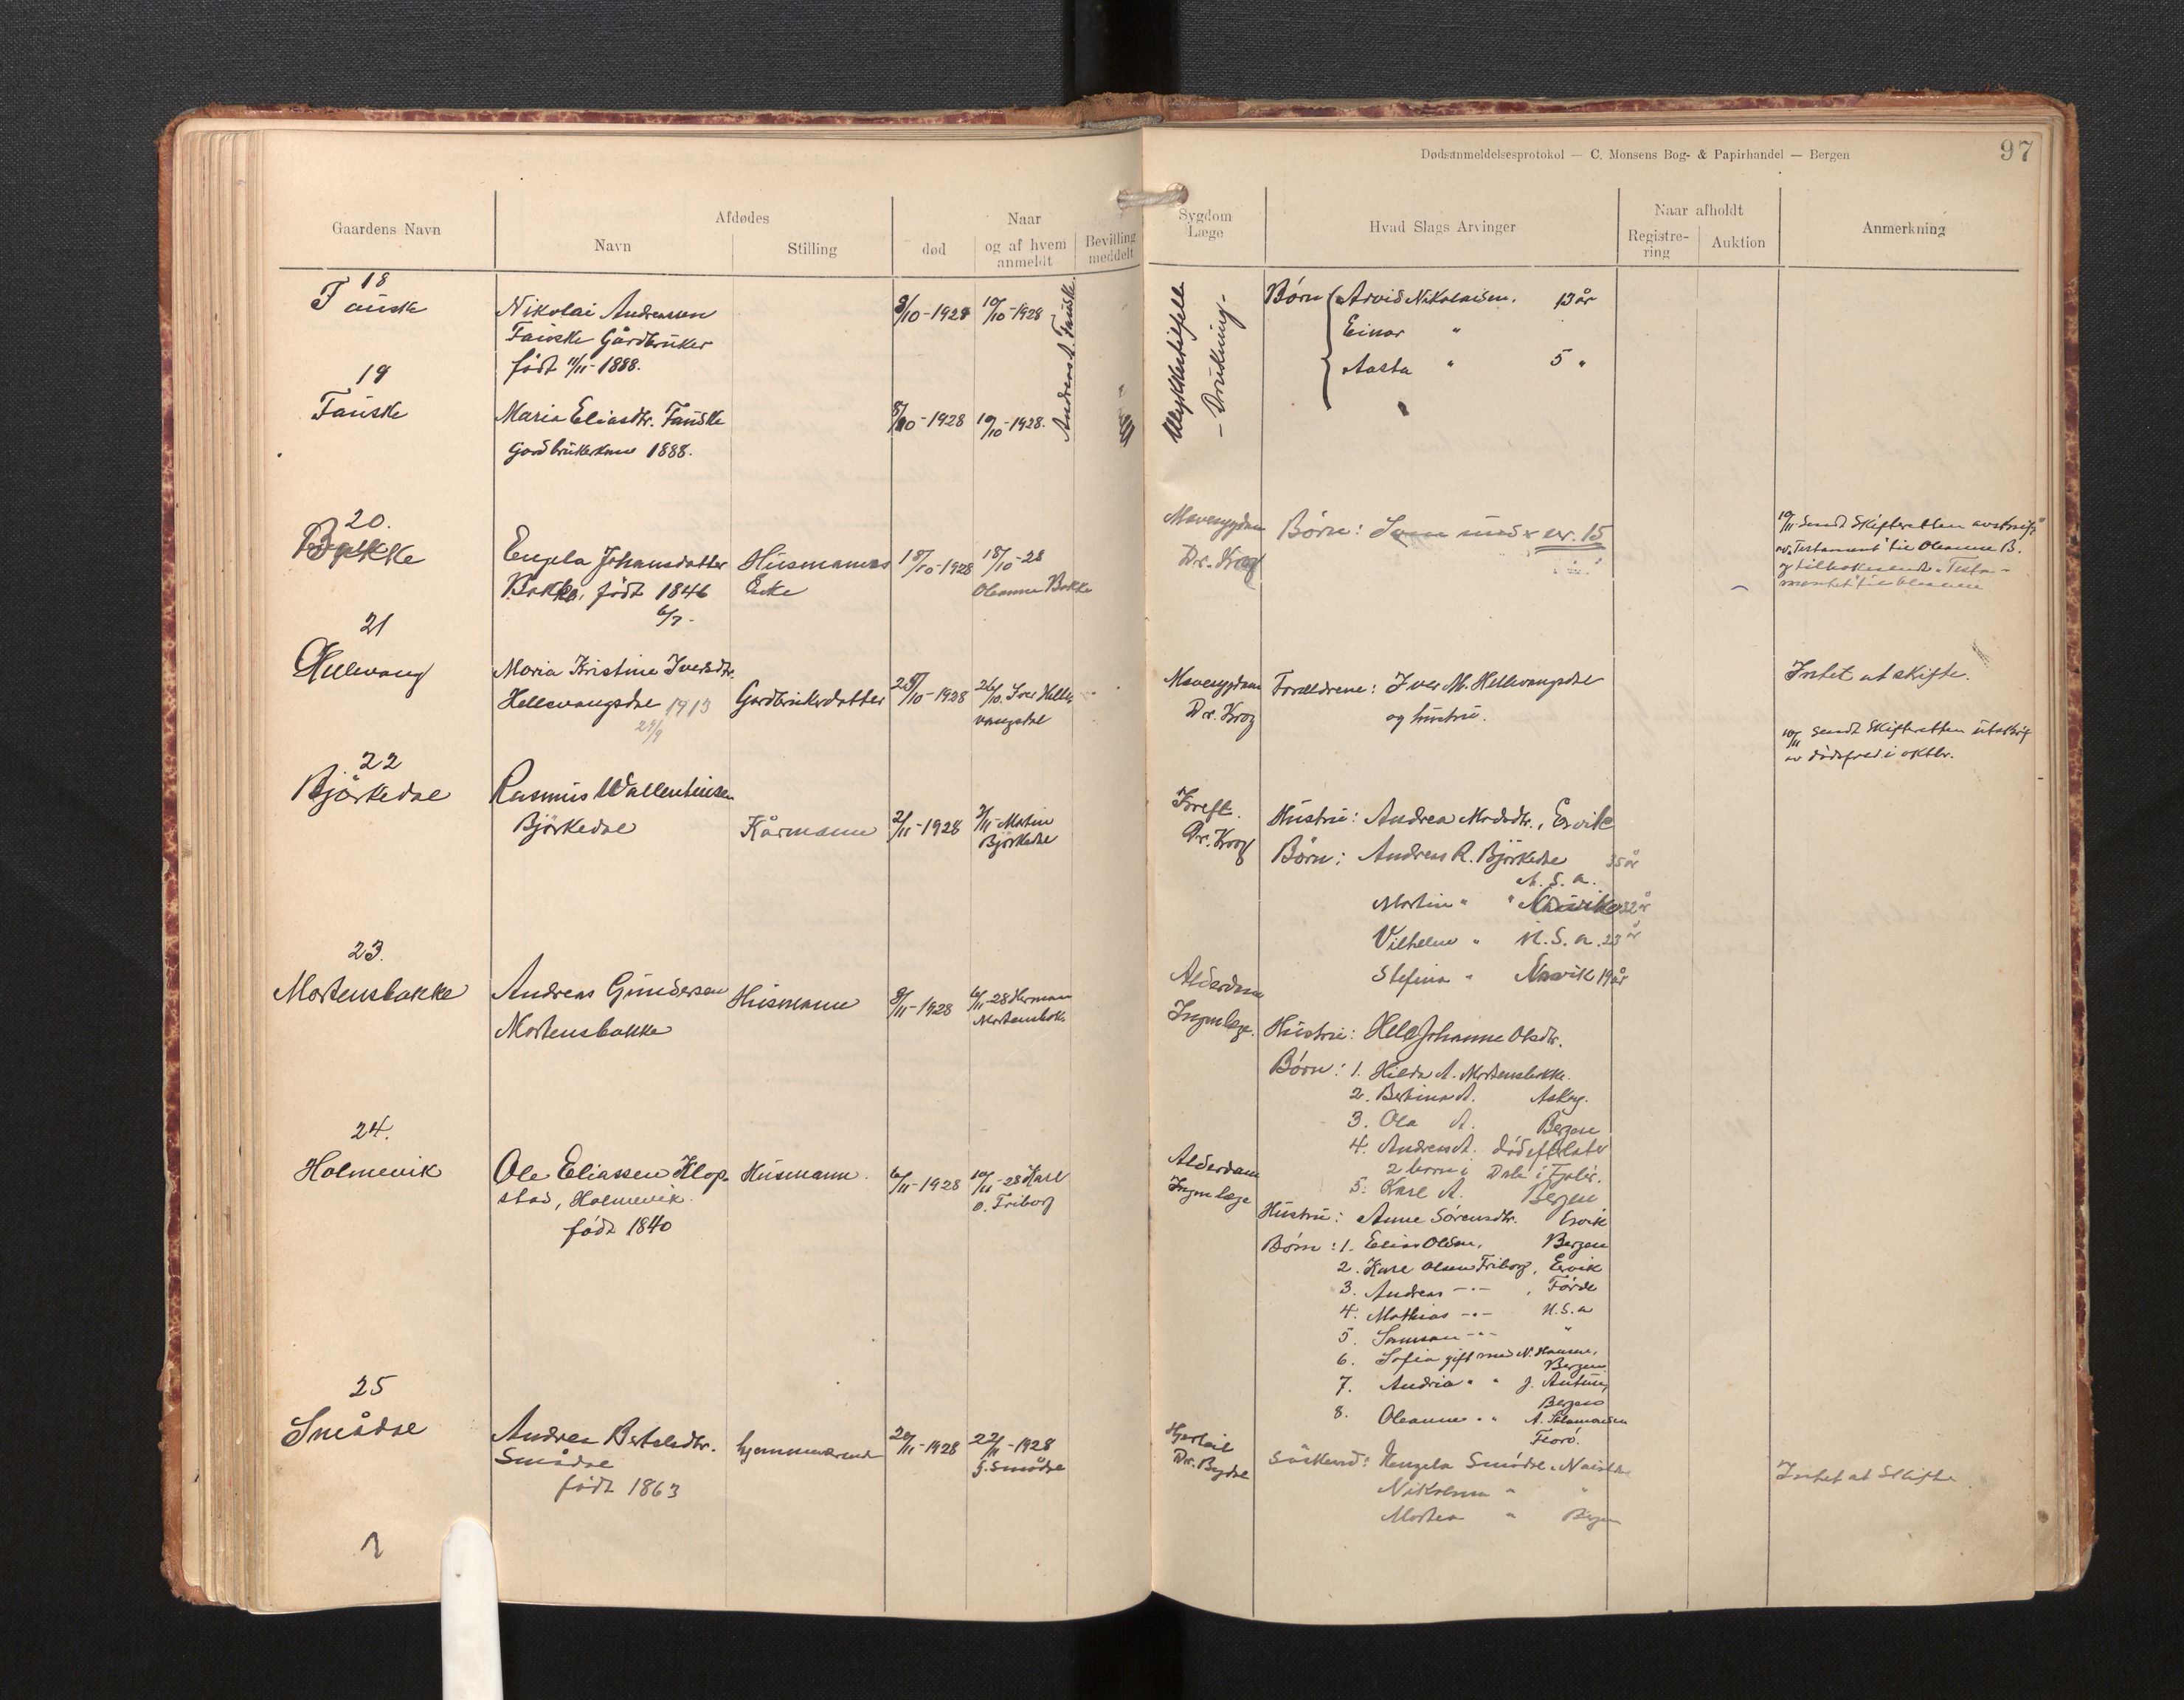 Dødsanmeldelsesprotokol — C. Monsens Bog- & Papirhandel — Bergen
97
Gaardens Navn
Afdødes
Navn
Stilling
Naar
død
og af hvem anmeldt
Bevilling meddelt
Sygdom
Læge
Hvad Slags Arvinger
Naar afholdt
Registre-
ring
Auktion
Anmerkning
18
Fauske
Nikolai Andreassen
Fauske Gårdbruker
født 11/11-1888.
9/10-1928
10/10-1928
Andreas A. Fauske
Ulykkestilfelle
- Drukning -
Børn
Arvid Nikolaisen. 13 år
Einar "
Aasta " 5 "
19
Fauske
Maria Eliasdtr. Fauske
Gardbrukerkone 1888.
8/10-1928
10/10-1928.
20.
Bakke
Engela Johansdatter
Bakke, født 1846
6/7-
Husmanns
Enke
18/10-1928
18/10-28
Oleanne Bakke
Mavesygdom
Dr. Krog
Børn: Som under nr. 15
10/11 Sendt Skifteretten avskrift
av "Testament" til Oleanne B.
og tilbakesendt "Testa-
mentet" til Oleanne
21
Hellevang
Maria Kristine Iversdtr.
Hellevangsdal 1913
29/9
Gardbrukerdatter
25/10-1928
26/10. Iver Helle
vangsdal
Mavesygdom
Dr. Krog
Foreldrene: Iver M. Hellevangsdal
og hustru.
Intet at skifte.
10/11 sendt Skifteretten utskrift
av dødsfred i oktbr.
22
Bjørkedal
Rasmus Wallentinsen
Bjørkedal
Kårmann
2/11-1928
3/11-Martin
Bjørkedal
Kreft.
Dr. Krog
Hustru: Andrea Madsdtr., Ervik
Børn: Andreas R. Bjørkedal 35 år
U. S. a.
Martin " " 32 år
Vilhelm " U. S. a. 23 år
Stefina " Ervik 19 år
23.
Mortensbakke
Andreas Gundersen
Mortensbakke
Husmann
8/11-1928
6/11-28 Herman
Mortensbak
Alderdom
Ingen læge.
Hustru: Helle Johanne Olsdtr.
Børn: 1. Hilda A. Mortensbakke.
2. Bertina A. Askøy.
3. Ola A. Bergen
4. Andreas A. død efterlater
2 barn i Dale i Fjaler.
5. Karl A. Bergen
24.
Holmevik
Ole Eliassen Klop-
stad, Holmevik.
født 1840
Husmann.
6/11-1928
10/11-28 Karl
O. Friborg
Alderdom
Ingen læge
Hustru: Anne Sørensdtr. Ervik
Børn: 1. Elias Olsen, Bergen
2. Karl Olsen Friborg, Ervik
3. Andreas -"- , Førde
4. Mathias -"- U.S.a
5. Samson -"- "
6. Sofia gift med N. Hansen,
Bergen
7. Andria " " J. Antun,
Bergen
8. Oleanne " " A. Salamonsen
Florø.
25
Smådal
Andrea Bertelsdtr.
Smådal
født 1863
hjemmeværende
20/11-1928
22/11-1928
G. Smådal
Hjertfeil
Dr. Bydal
Søskend: Engela Smådal,
Nikolena " "
Martea " Bergen
Intet at Skifte